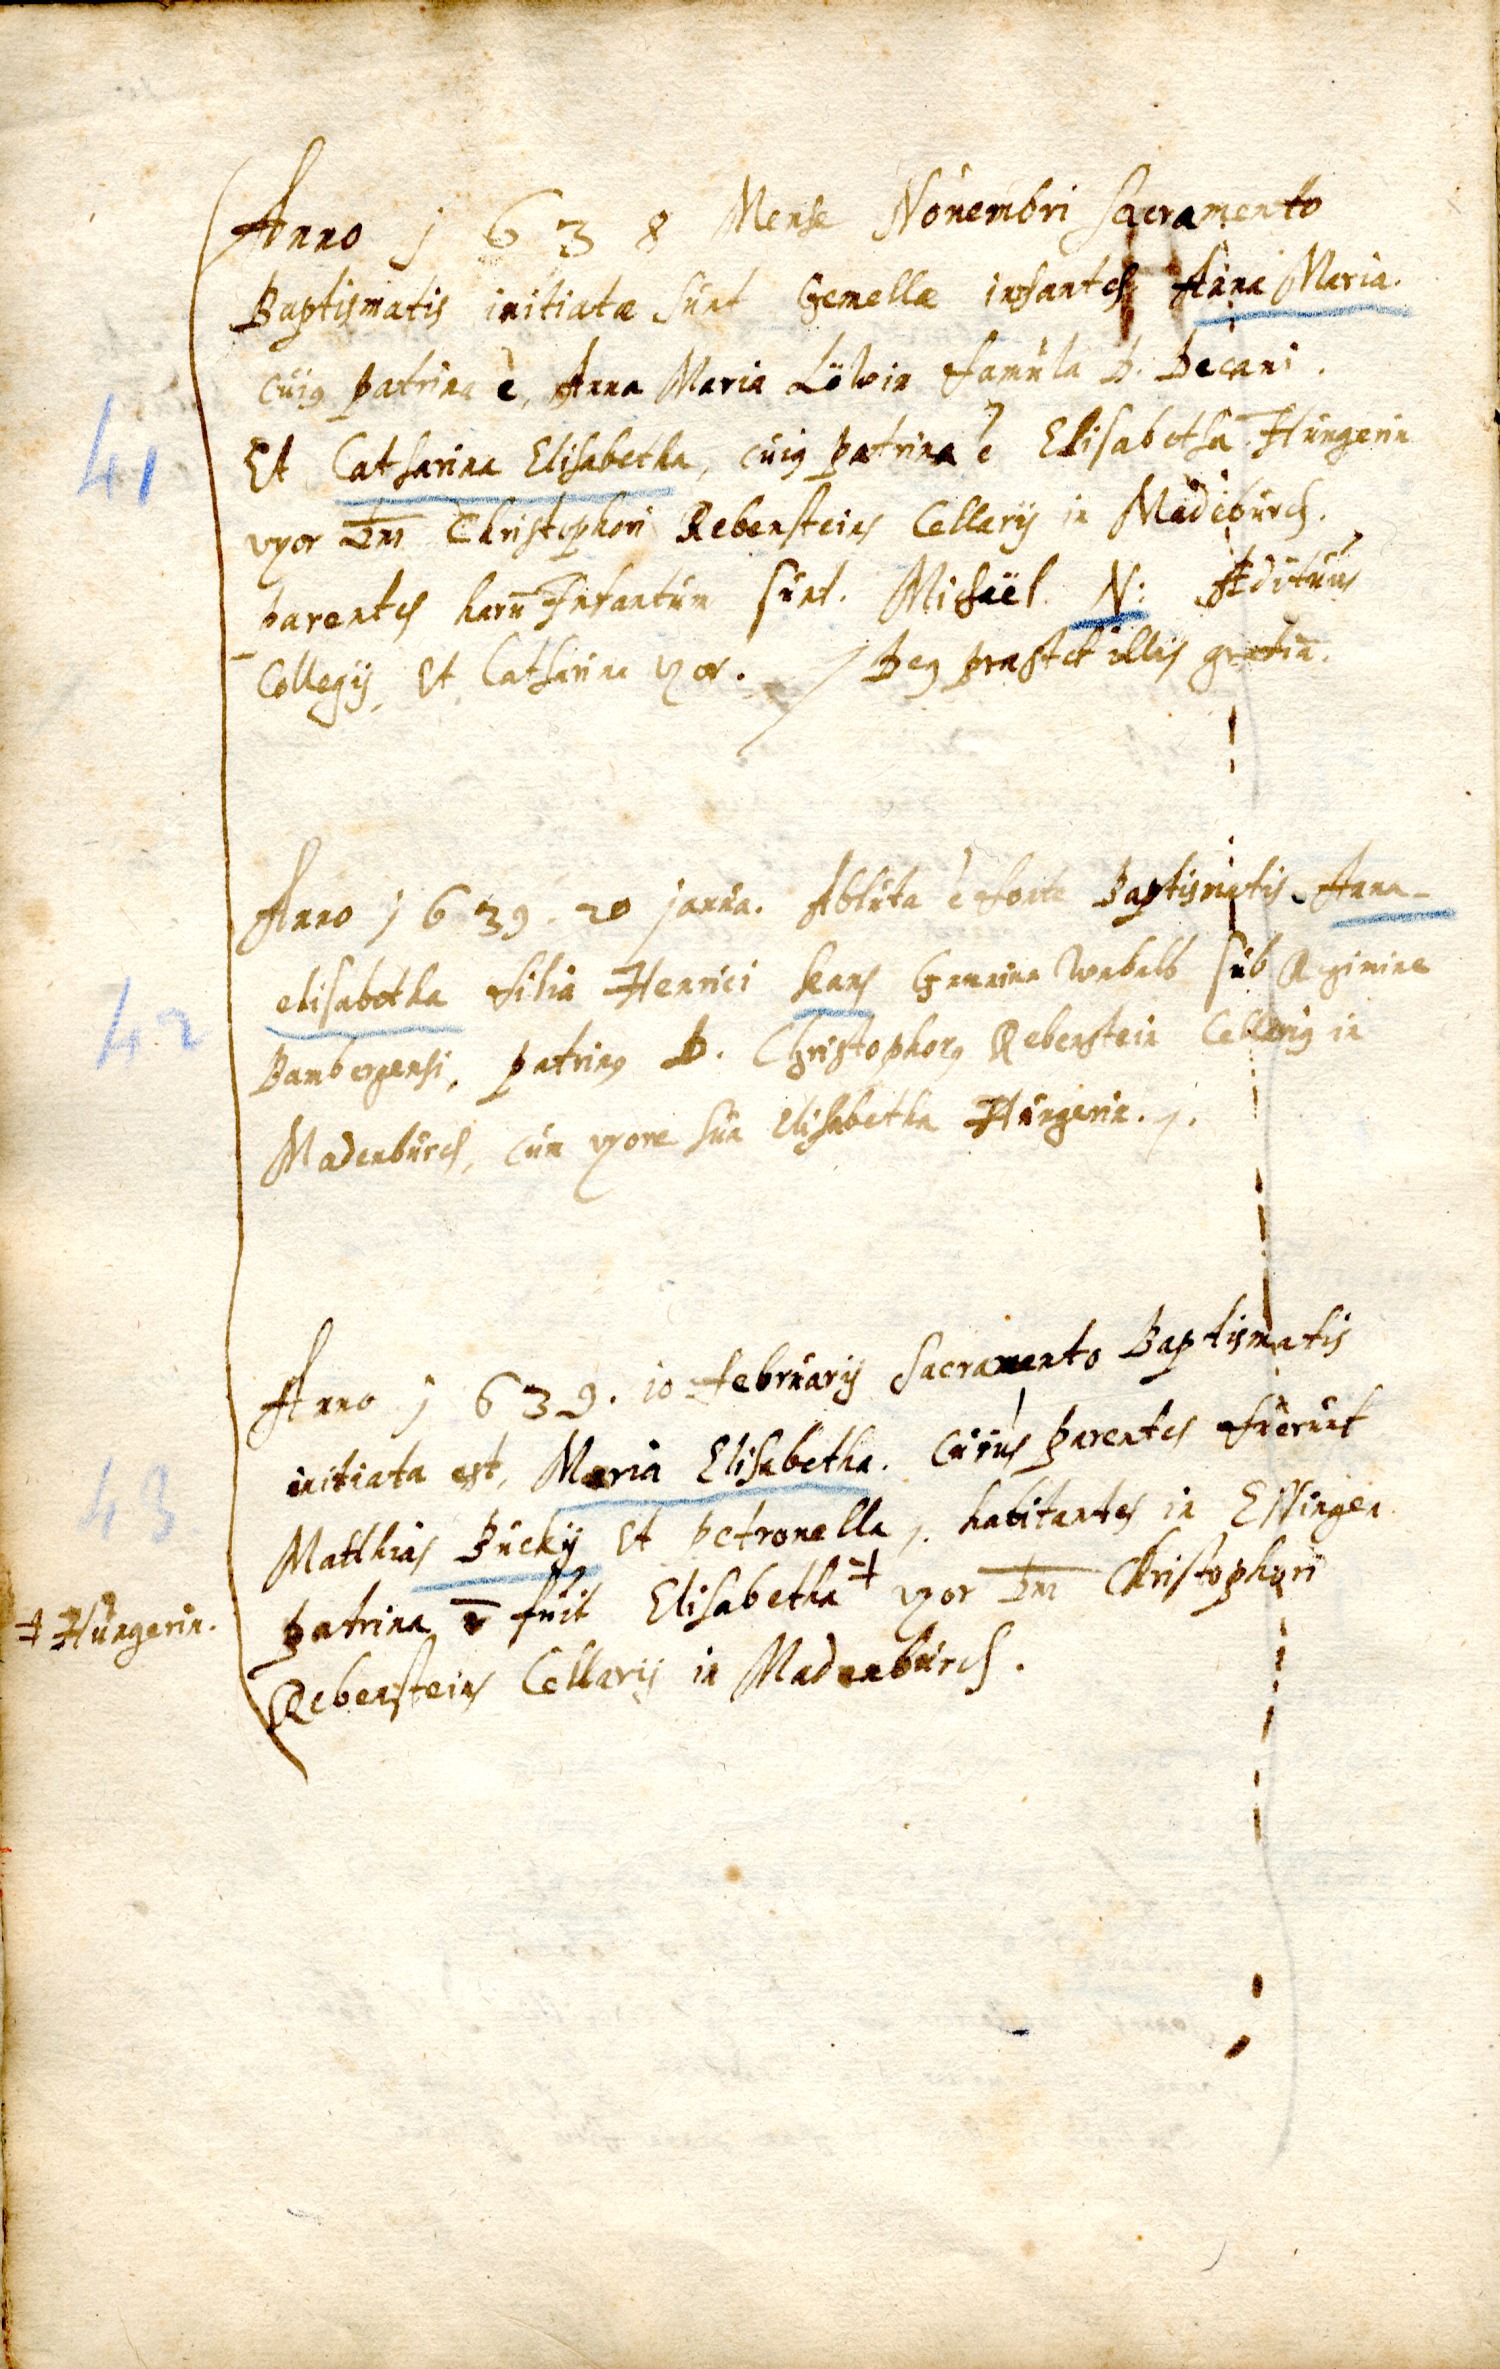 Anno 1638 Mense Nouembri Sacramento
Baptismatis initiatæ sunt Gemellæ infantes Anna Maria.
cuig patrina è, Anna Maria Löwin famula D. Decani.
41
Et Catharina Elisabetha, cuig patrina è Elisabetha Hungerin
vxor Dni Christophori Rebensteins Cellarij in Madeburch.
parentes harū Infantum sunt. Michaël N: Ædituus
Collegij, Et Catharina vxor. / Deg præstet illis gratiā.
Anno 1639. 20 janua. Abluta è fonte Baptismatis Anna-
elisabetha filia Henrici sub Regimine
42
Bambergensi, patring D. Christophorg Rebenstein Cellarig in
Madenburch, cum vxore sua Elisabetha Hungerin.
Anno 1639. 10 februarij Sacramento Baptismatis
initiata est, Maria Elisabetha. Cuius parentes fuerunt
43
Matthias Bückij Et petronella, habitantes in Essingen
patrina fuit Elisabetha ‡ vxor Dni Christophori
‡ Hungerin.
Rebensteins Cellarij in Madenburch.